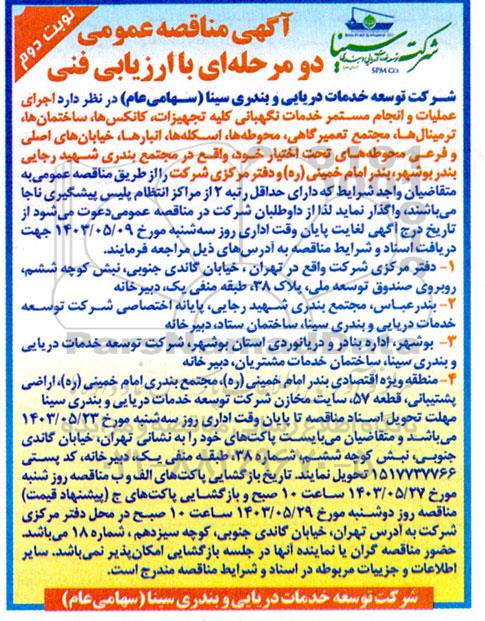 نوبت دوم
آگهی مناقصه عمومی
دو مرحله‌ای با ارزیابی فنی
شرکت سینا
توسعه خدمات دریایی و بندری
SPM Co.
شرکت توسعه خدمات دریایی و بندری سینا (سهامی عام) در نظر دارد اجرای
عملیات و انجام مستمر خدمات نگهبانی کلیه تجهیزات، کانکس‌ها، ساختمان‌ها،
ترمینال‌ها، مجتمع تعمیرگاهی، محوطه‌ها، اسکله‌ها، انبارها، خیابان‌های اصلی
و فرعی محوطه‌های تحت اختیار خود، واقع در مجتمع بندری شهید رجایی
بندر بوشهر، بندر امام خمینی (ره) و دفتر مرکزی شرکت را از طریق مناقصه عمومی به
متقاضیان واجد شرایط که دارای حداقل رتبه ۲ از مراکز انتظام پلیس پیشگیری ناجا
می‌باشند، واگذار نماید لذا از داوطلبان شرکت در مناقصه عمومی دعوت می‌شود از
تاریخ درج آگهی لغایت پایان وقت اداری روز سه‌شنبه مورخ ۱۴۰۳/۰۵/۰۹ جهت
دریافت اسناد و شرایط مناقصه به آدرس‌های ذیل مراجعه فرمایند.
۱- دفتر مرکزی شرکت واقع در تهران، خیابان گاندی جنوبی، نبش کوچه ششم،
روبروی صندوق توسعه ملی، پلاک ۳۸، طبقه منفی یک، دبیرخانه
۲- بندرعباس، مجتمع بندری شهید رجایی، پایانه اختصاصی شرکت توسعه
خدمات دریایی و بندری سینا، ساختمان ستاد، دبیرخانه
۳- بوشهر، اداره بنادر و دریانوردی استان بوشهر، شرکت توسعه خدمات دریایی
و بندری سینا، ساختمان خدمات مشتریان، دبیرخانه
۴- منطقه ویژه اقتصادی بندر امام خمینی (ره)، مجتمع بندری امام خمینی (ره)، اراضی
پشتیبانی، قطعه ۵۷، سایت مخازن شرکت توسعه خدمات دریایی و بندری سینا
مهلت تحویل اسناد مناقصه تا پایان وقت اداری روز سه‌شنبه مورخ ۱۴۰۳/۰۵/۲۳
می‌باشد و متقاضیان می‌بایست پاکت‌های خود را به نشانی تهران، خیابان گاندی
جنوبی، نبش کوچه ششم، شماره ۳۸، طبقه منفی یک، دبیرخانه، کد پستی
۱۵۱۷۷۳۷۷۶۶ تحویل نمایند. تاریخ بازگشایی پاکت‌های الف و ب مناقصه روز شنبه
مورخ ۱۴۰۳/۰۵/۲۷ ساعت ۱۰ صبح و بازگشایی پاکت‌های ج (پیشنهاد قیمت)
مناقصه روز دوشنبه مورخ ۱۴۰۳/۰۵/۲۹ ساعت ۱۰ صبح در محل دفتر مرکزی
شرکت به آدرس تهران، خیابان گاندی جنوبی، کوچه سیزدهم، شماره ۱۸ می‌باشد.
حضور مناقصه گران یا نماینده آنها در جلسه بازگشایی امکان‌پذیر نمی‌باشد. سایر
اطلاعات و جزییات مربوطه در اسناد و شرایط مناقصه مندرج است.
شرکت توسعه خدمات دریایی و بندری سینا (سهامی عام)